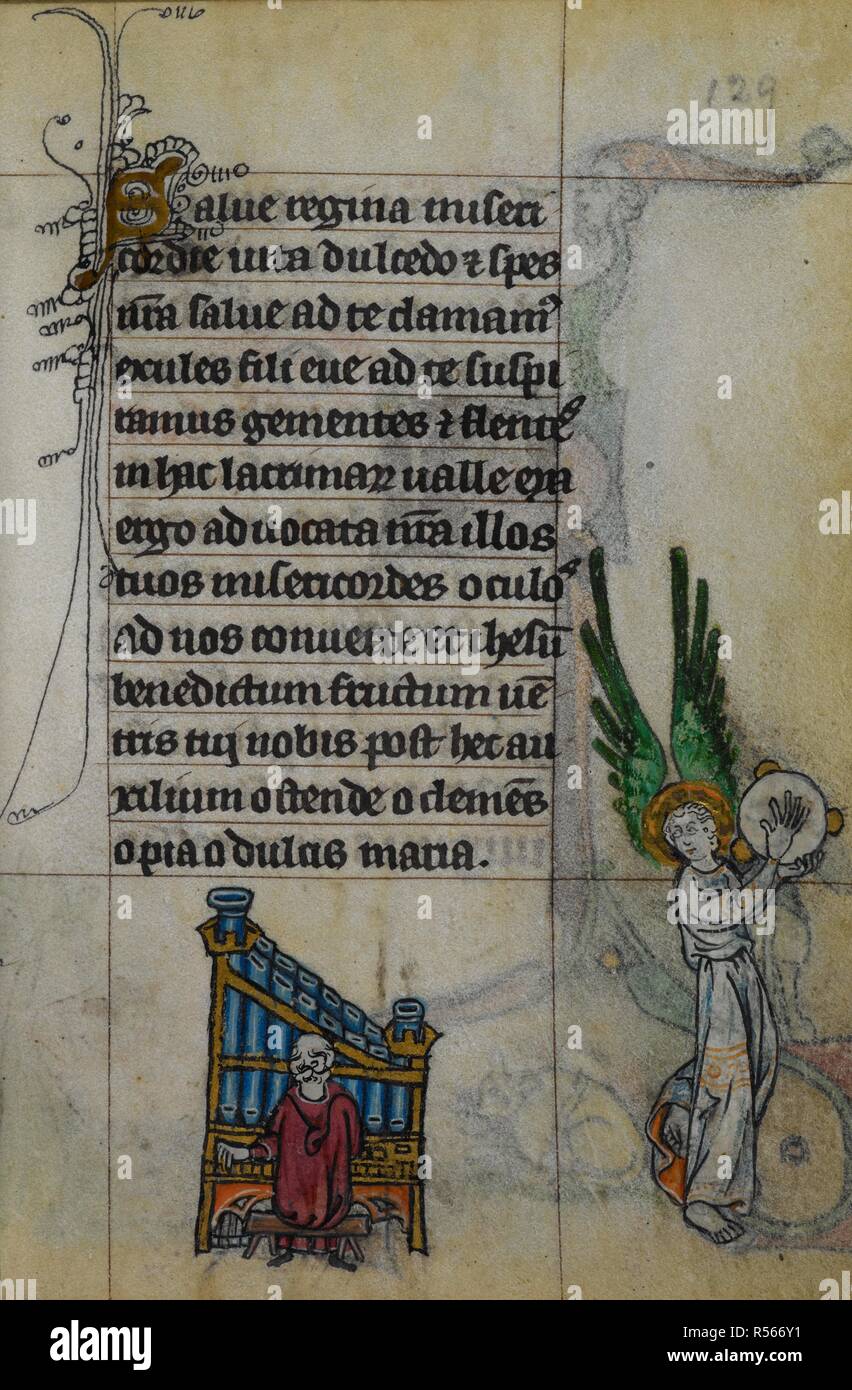 129
Salue regina miseri
cordie uita dulcedo ⁊ spes
nr̄a salue ad te clamam᾿
exules filii eue ad te suspi
ramus gementes ⁊ flentes
in hac lacrimaꝝ ualle eya
ergo aduocata nr̄a illos
tuos misericordes oculos
ad nos conuerte et ihesū
benedictum fructum uē
tris tui nobis post hec au
xilium ostende o clemēs
o pia o dulcis maria.
a alamy stock photo
alamy
Image ID: R566Y1
www.alamy.com